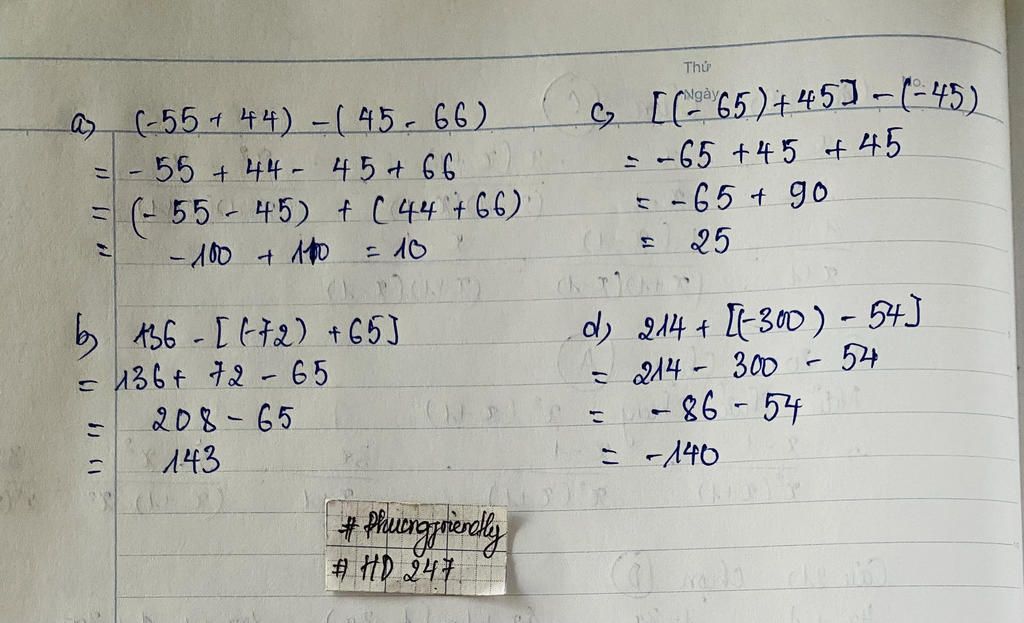 Thứ
Ngày
No.
a) (-55 + 44) - (45 - 66)
= - 55 + 44 - 45 + 66
= (- 55 - 45) + (44 + 66)
= -100 + 110 = 10
b) 136 - [(-72) + 65]
= 136 + 72 - 65
= 208 - 65
= 143
c) [(-65) + 45] - (-45)
= -65 + 45 + 45
= -65 + 90
= 25
d) 214 + [(-300) - 54]
= 214 - 300 - 54
= -86 - 54
= -140
# Phuongfriendly
# HD 247